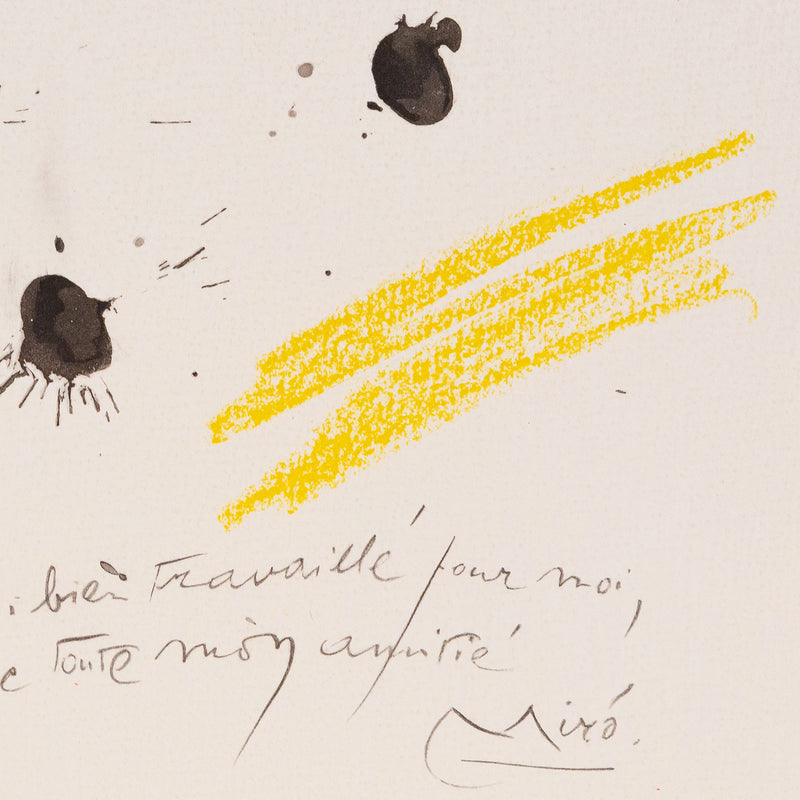 i bien travaillé pour moi,
c toute mon amitié
Miró.